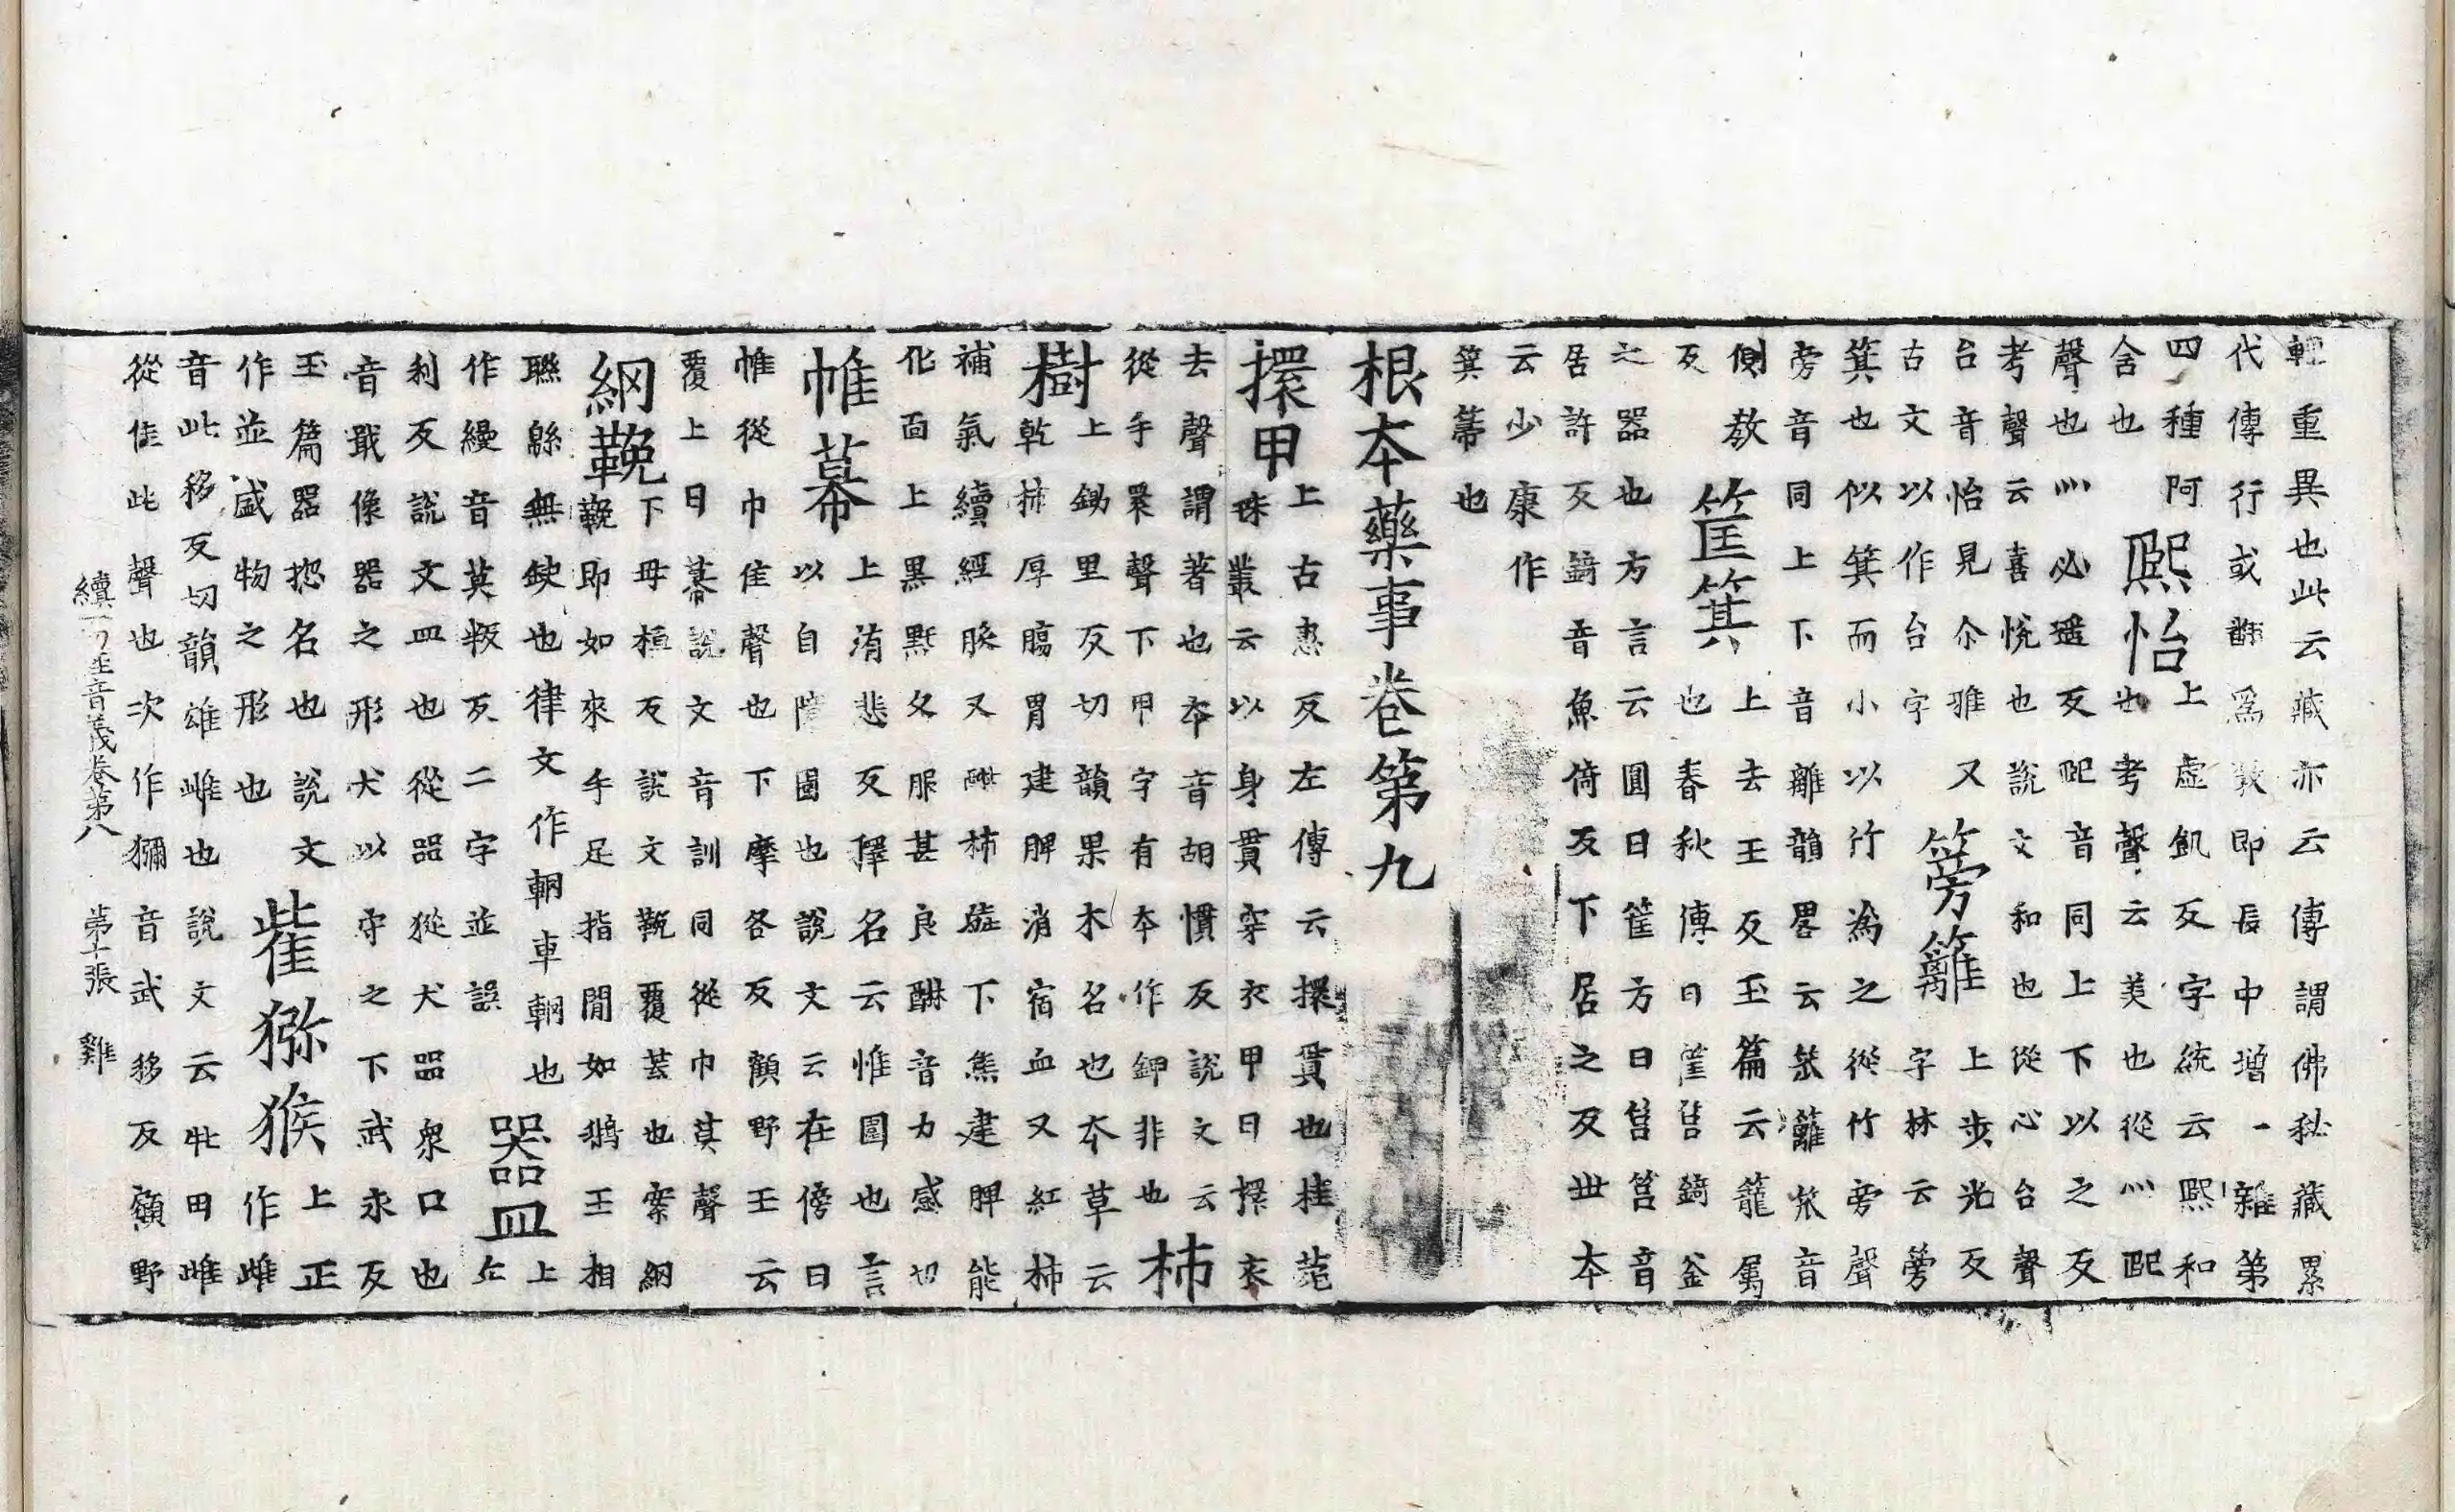 輕重異也此云藏亦云傳謂佛秘藏累
代傳行或翻爲教即長中增一雜第
四種阿
含也
熙怡
上虛飢反字統云熙和
也考聲云美也從灬巸
聲也灬必遥反巸音同上下以之反
考聲云喜悅也說文和也從心台聲
台音怡見尒雅又
古文以作台字
篣籬
上步光反
字林云篣
箕也似箕而小以竹為之從竹旁聲
旁音同上下音離韻畧云笊籬笊音
側教
反
筐箕
上去王反玉篇云籠屬
也春秋傳曰筐筥錡釜
之器也方言云圓曰筐方曰筥筥音
居許反錡音魚倚反下居之反世本
云少康作
箕箒也
根本藥事卷第九
擐甲
上古患反左傳云擐貫也桂菀
珠叢云以身貫穿衣甲曰擐衣
去聲謂著也本音胡慣反說文云
從手睘聲下甲字有本作鉀非也
柿樹
上鋤里反切韻果木名也本草云
乾柿厚腸胃建脾消宿血又紅柿
補氣續經脉又醂柿下焦建脾能
化面上黑黚久服甚良醂音力感切
帷幕
上洧悲反釋名云惟圍也言
以自障圍也說文云在傍曰
帷從巾隹聲也下摩各反顧野王云
覆上曰幕說文音訓同從巾莫聲
網鞔
下母桓反說文鞔覆蓋也案網
鞔即如來手足指間如鵝王相
聯緜無缺也律文作輞車輞也
作縵音莫赧反二字並誤
器皿
上
利反說文皿也從器從犬器衆口也
音戢像器之形犬以守之下武永反
玉篇器惣名也說文
作並盛物之形也
雌猕猴
上正
作雌
音此移反切韻雄雌也說文云牝田雌
從隹此聲也次作獼音武移反顧野
續一切經音義卷第八 第十張 雞